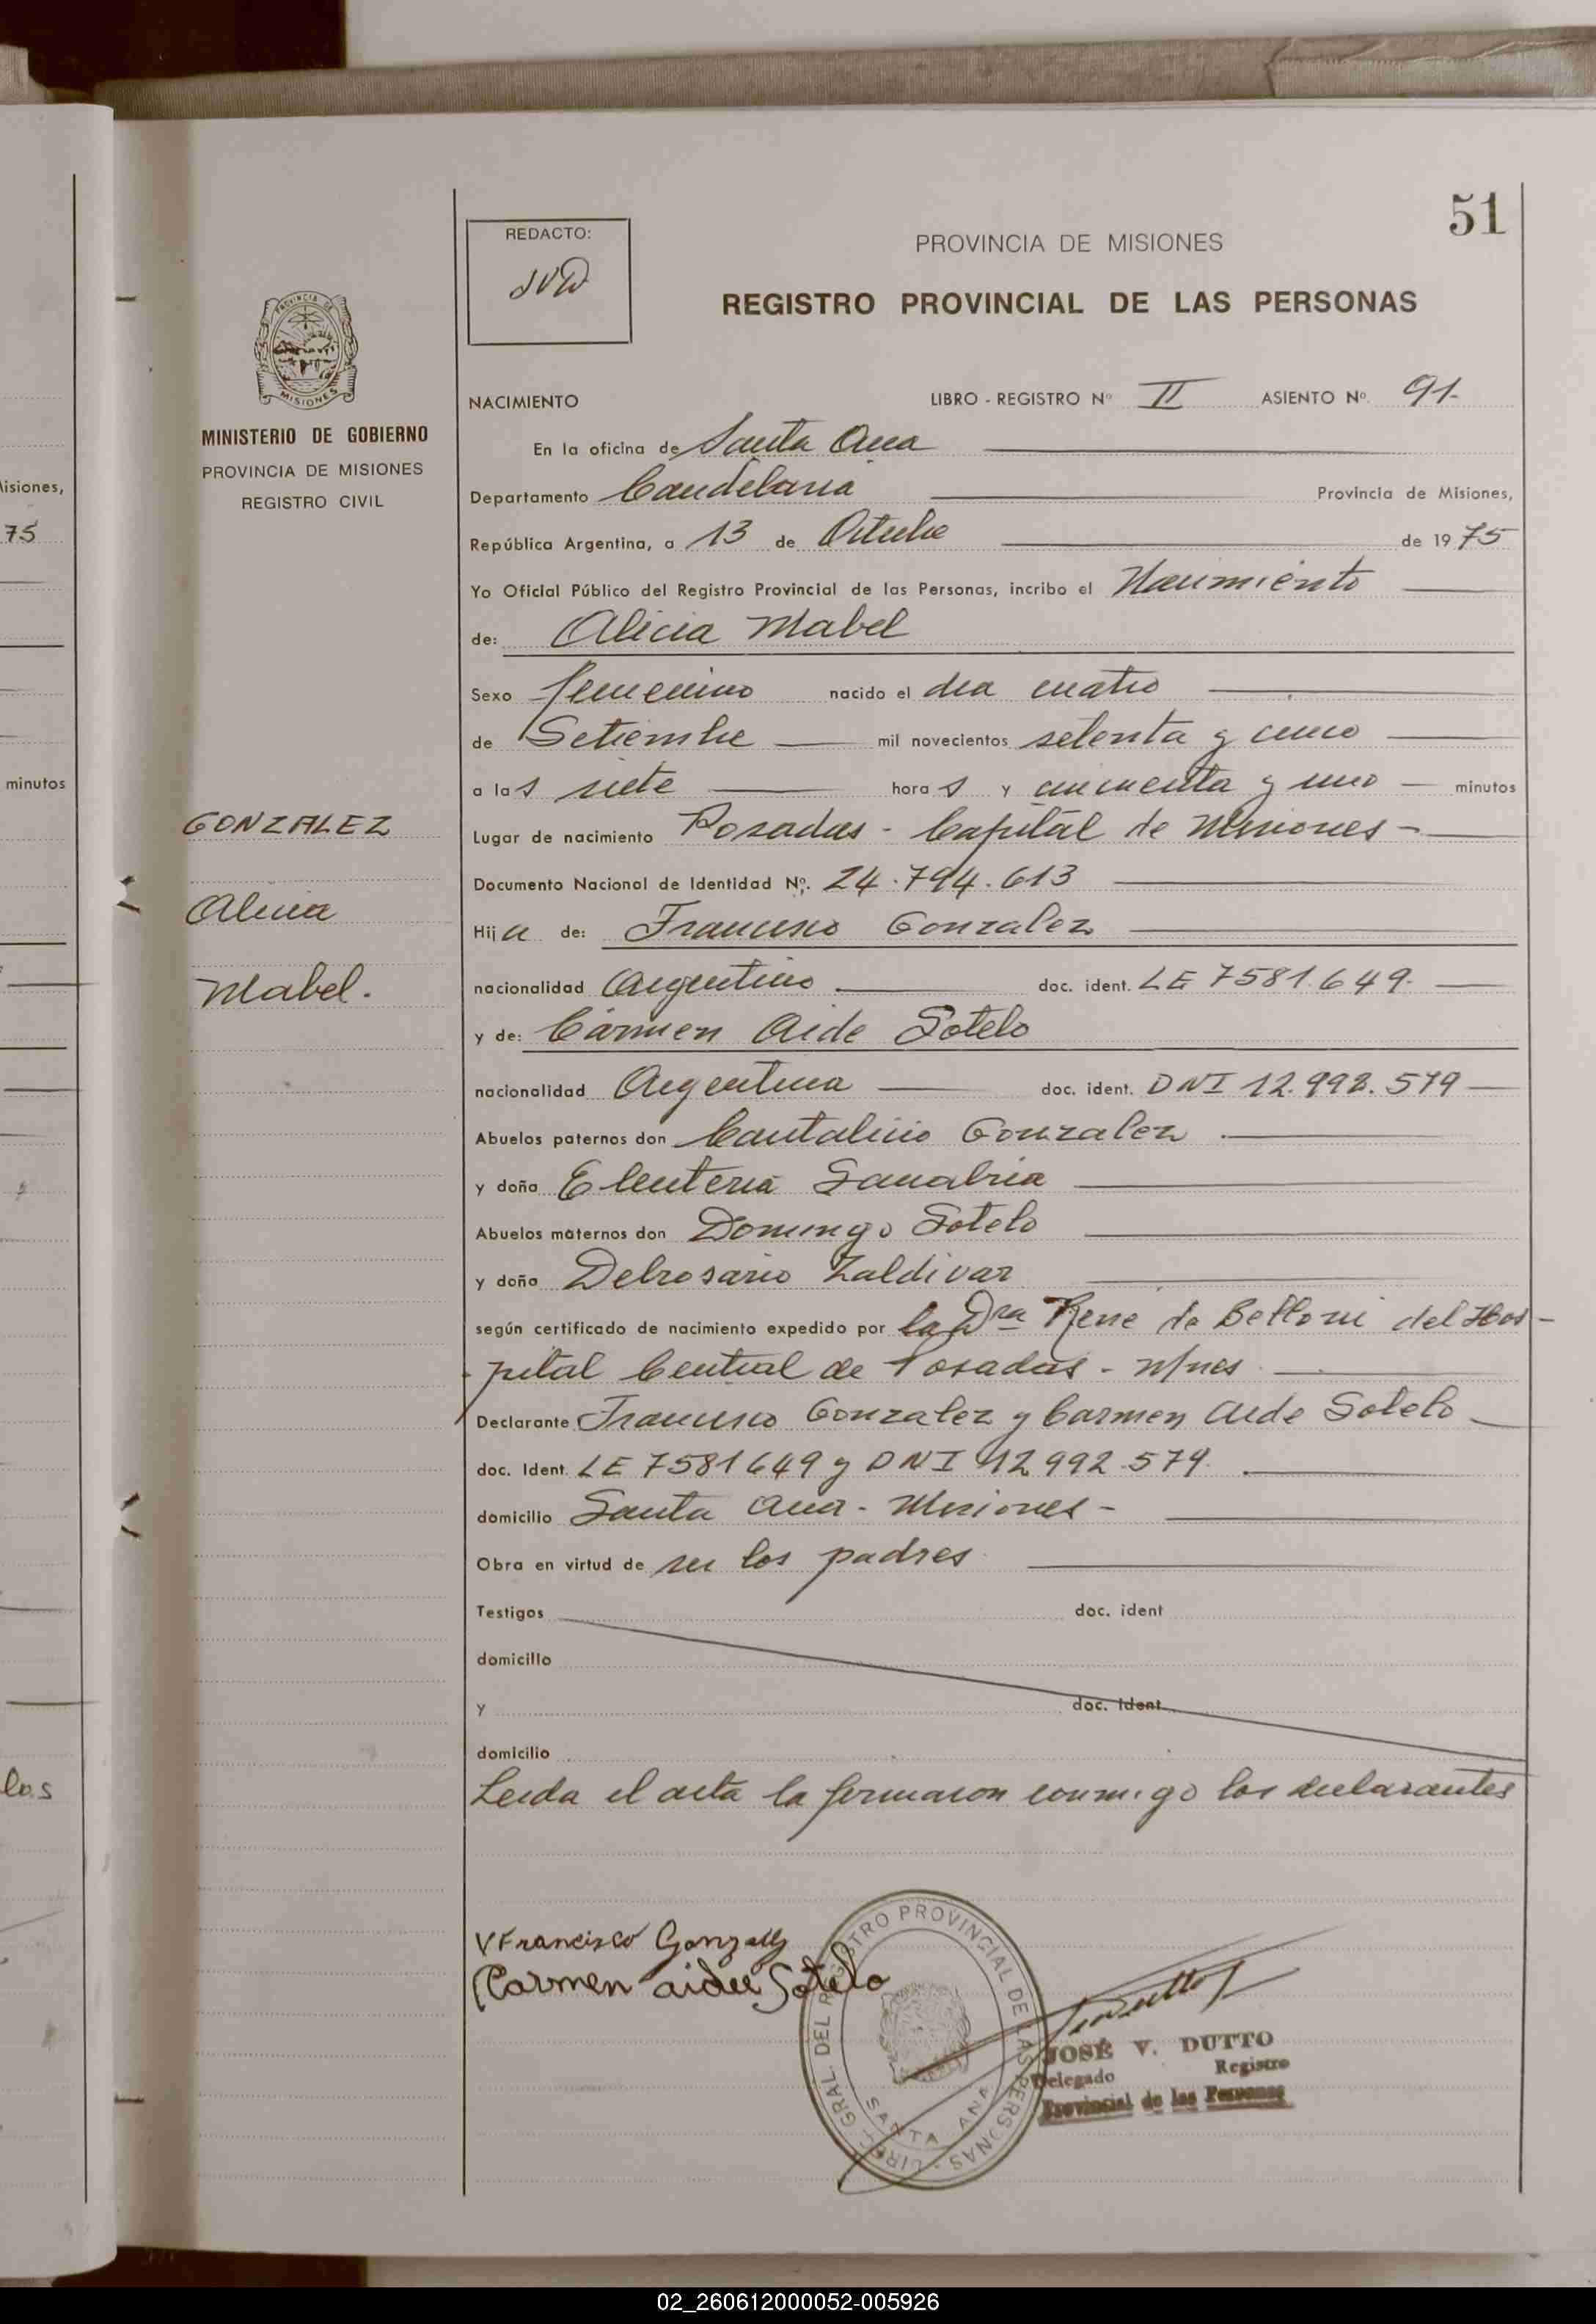 51
REDACTO:
JVD
PROVINCIA DE MISIONES
REGISTRO PROVINCIAL DE LAS PERSONAS
PROVINCIA DE
MISIONES
MINISTERIO DE GOBIERNO
PROVINCIA DE MISIONES
REGISTRO CIVIL
GONZALEZ
Alicia
Mabel.
NACIMIENTO LIBRO - REGISTRO Nº II ASIENTO Nº 91-
En la oficina de Santa Ana
Departamento Candelaria Provincia de Misiones,
República Argentina, a 13 de Octubre de 1975
Yo Oficial Público del Registro Provincial de las Personas, incribo el Nacimiento
de: Alicia Mabel
Sexo femenino nacido el dia cuatro
de Setiembre mil novecientos setenta y cinco
a las siete horas y cincuenta y uno minutos
Lugar de nacimiento Posadas - Capital de Misiones -
Documento Nacional de Identidad Nº. 24.794.613
Hija de: Francisco Gonzalez
nacionalidad Argentino doc. ident. LE 7581.649.
y de: Carmen Aide Sotelo
nacionalidad Argentina doc. ident. DNI 12.992.579
Abuelos paternos don Cantalicio Gonzalez
y doña Eleuteria Sanabria
Abuelos maternos don Domingo Sotelo
y doña Delrosario Zaldivar
según certificado de nacimiento expedido por la Dra Rene de Belloni del Hos-
pital Central de Posadas - M/nes
Declarante Francisco Gonzalez y Carmen Aide Sotelo
doc. Ident. LE 7581649 y DNI 12992.579.
domicilio Santa Ana - Misiones -
Obra en virtud de ser los padres
Testigos doc. ident
domicilio
y doc. Ident
domicilio
Leida el acta la firmaron conmigo los declarantes
Francisco Gonzalez
Carmen aidee Sotelo
DIREC. GRAL. DEL REGISTRO PROVINCIAL DE LAS PERSONAS -
SANTA ANA
JOSÉ V. DUTTO
Delegado Registro
Provincial de las Personas
isiones,
75
minutos
los
02_260612000052-005926